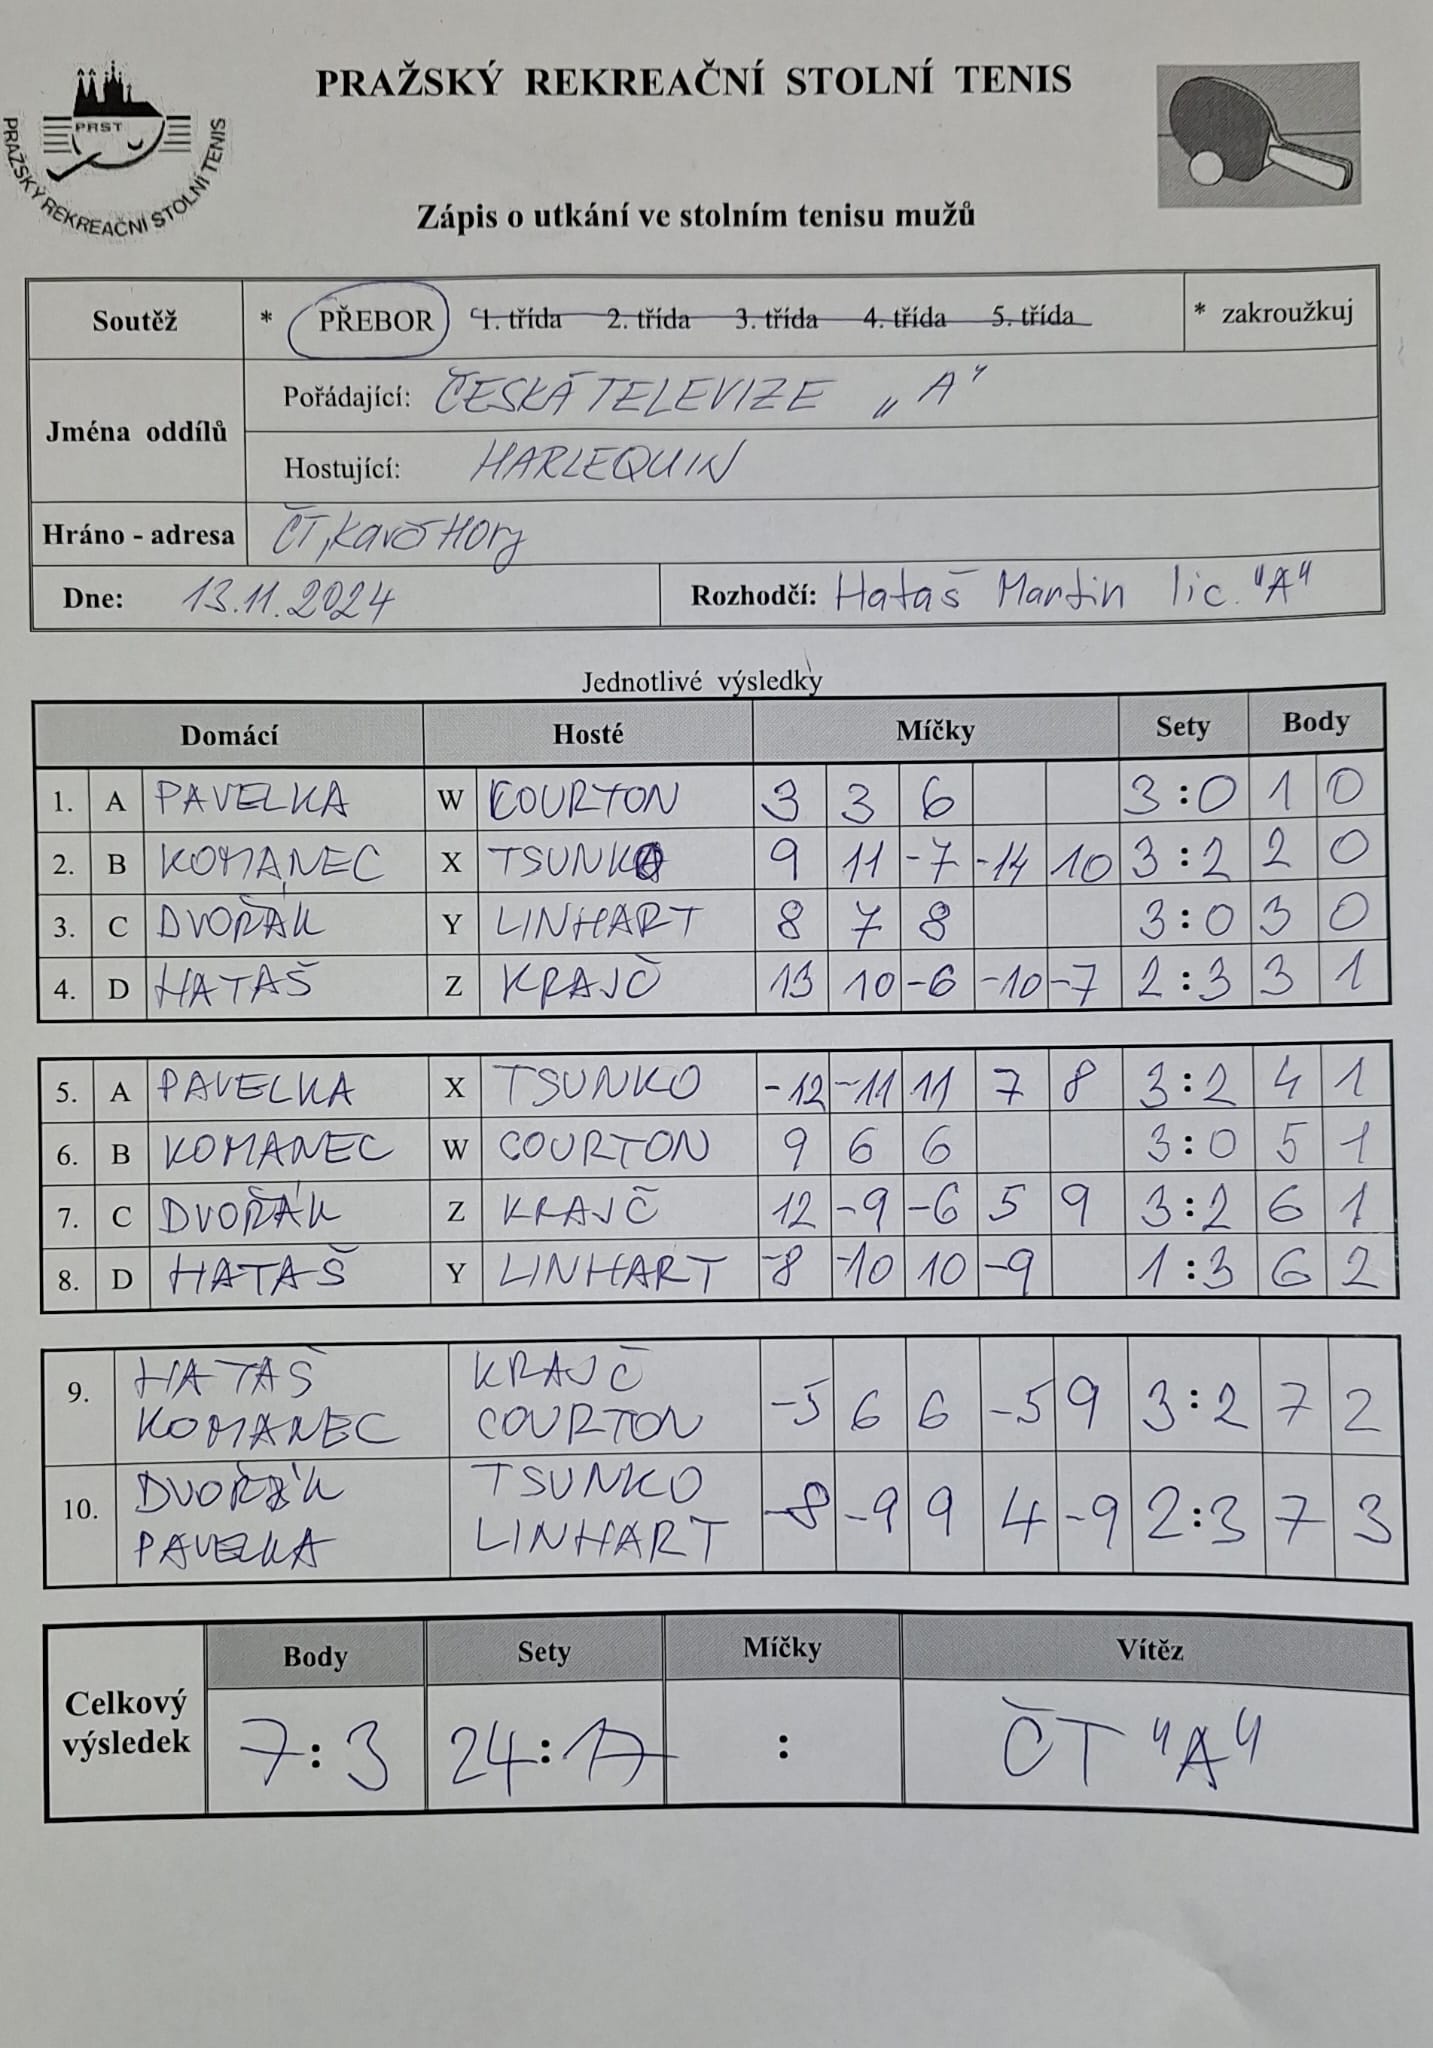 PRAŽSKÝ REKREAČNÍ STOLNÍ TENIS
PRST
PRAŽSKÝ REKREAČNÍ STOLNÍ TENIS
Zápis o utkání ve stolním tenisu mužů
Soutěž * PŘEBOR 1. třída 2. třída 3. třída 4. třída 5. třída * zakroužkuj
Jména oddílů
Pořádající: ČESKÁ TELEVIZE „A"
Hostující: HARLEQUIN
Hráno - adresa ČT, Kavčí Hory
Dne: 13.11.2024 Rozhodčí: Hataš Martin lic. "A"
Jednotlivé výsledky
Domácí Hosté Míčky Sety Body
1. A PAVELKA W COURTON 3 3 6 3:0 1 0
2. B KOMANEC X TSUNKO 9 11 -7 -14 10 3:2 2 0
3. C DVOŘÁK Y LINHART 8 7 8 3:0 3 0
4. D HATAŠ Z KRAJČ 13 10 -6 -10 -7 2:3 3 1
5. A PAVELKA X TSUNKO -12 -11 11 7 8 3:2 4 1
6. B KOMANEC W COURTON 9 6 6 3:0 5 1
7. C DVOŘÁK Z KRAJČ 12 -9 -6 5 9 3:2 6 1
8. D HATAŠ Y LINHART -8 -10 10 -9 1:3 6 2
HATAŠ KRAJČ
9. -5 6 6 -5 9 3:2 7 2
KOMANEC COURTON
DVOŘÁK TSUNKO
10. -8 -9 9 4 -9 2:3 7 3
PAVELKA LINHART
Body Sety Míčky Vítěz
Celkový výsledek 7:3 24:17 : ČT "A"